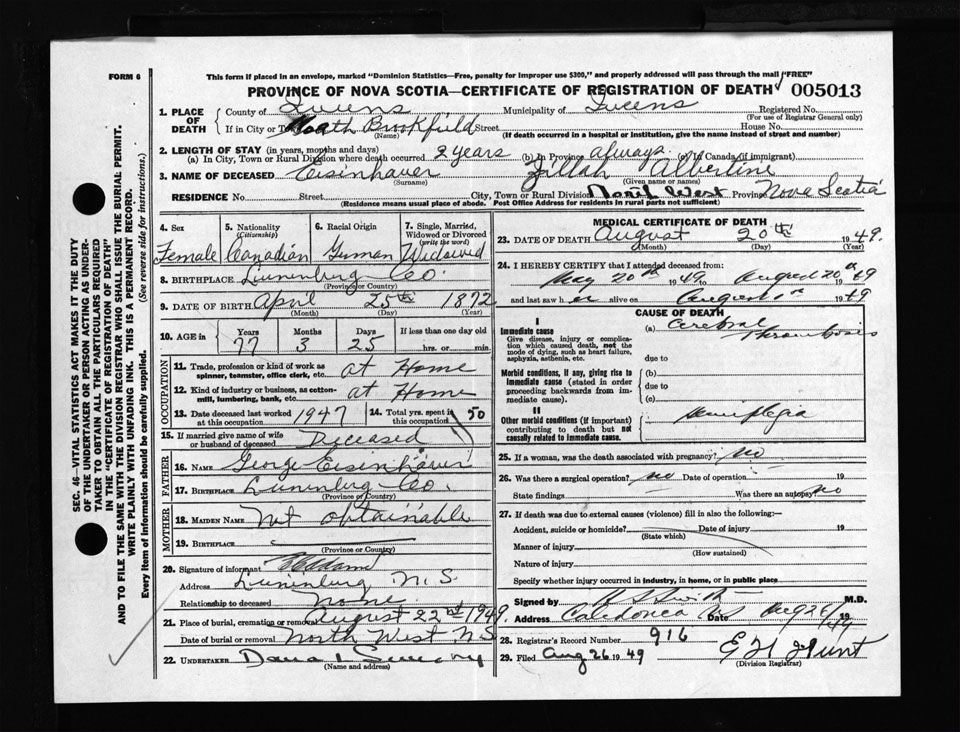 FORM 6
This form if placed in an envelope, marked "Dominion Statistics—Free, penalty for improper use $300," and properly addressed will pass through the mail "FREE"
PROVINCE OF NOVA SCOTIA—CERTIFICATE OF REGISTRATION OF DEATH 005013
1. PLACE OF DEATH County of Queens Municipality of Queens Registered No.
(For use of Registrar General only)
If in City or North Brookfield Street House No.
(Name) (If death occurred in a hospital or institution, give the name instead of street and number)
2. LENGTH OF STAY (in years, months and days)
(a) In City, Town or Rural Division where death occurred 2 years (b) In Province always (c) In Canada (if immigrant)
3. NAME OF DECEASED Eisenhauer Zillah Albertine
(Surname) (Given name or names)
RESIDENCE No. Street City, Town or Rural Division North West Province Nova Scotia
(Residence means usual place of abode. Post Office Address for residents in rural parts not sufficient)
4. Sex 5. Nationality (Citizenship) 6. Racial Origin 7. Single, Married, Widowed or Divorced (write the word)
Female Canadian German Widowed
8. BIRTHPLACE Lunenburg Co.
(Province or Country)
9. DATE OF BIRTH April 25th 1872
(Month) (Day) (Year)
10. AGE in Years Months Days If less than one day old
77 3 25 hrs. or min.
OCCUPATION
11. Trade, profession or kind of work as spinner, teamster, office clerk, etc. at Home
12. Kind of industry or business, as cotton-mill, lumbering, bank, etc. at Home
13. Date deceased last worked at this occupation 1947 14. Total yrs. spent in this occupation 50
15. If married give name of wife or husband of deceased Deceased
FATHER
16. NAME George Eisenhauer
17. BIRTHPLACE Lunenburg Co.
(Province or Country)
MOTHER
18. MAIDEN NAME Not obtainable
19. BIRTHPLACE
(Province or Country)
20. Signature of informant
Address Lunenburg N.S.
Relationship to deceased None
21. Place of burial, cremation or removal August 22nd 1949
Date of burial or removal North West N.S
22. UNDERTAKER
(Name and address)
MEDICAL CERTIFICATE OF DEATH
23. DATE OF DEATH August 20th 1949.
(Month) (Day) (Year)
24. I HEREBY CERTIFY that I attended deceased from:
May 20th 1949 to August 20th 1949
and last saw er alive on August 1949
CAUSE OF DEATH
I
Immediate cause
Give disease, injury or complication which caused death, not the mode of dying, such as heart failure, asphyxia, asthenia, etc.
(a) Cerebral Thrombosis
due to
Morbid conditions, if any, giving rise to immediate cause (stated in order proceeding backwards from immediate cause).
(b)
due to
(c)
II
Other morbid conditions (if important) contributing to death but not causally related to immediate cause.
Hemiplegia
25. If a woman, was the death associated with pregnancy? no
26. Was there a surgical operation? no Date of operation 19
State findings Was there an autopsy no
27. If death was due to external causes (violence) fill in also the following:—
Accident, suicide or homicide? Date of injury 19
(State which)
Manner of injury
(How sustained)
Nature of injury
Specify whether injury occurred in industry, in home, or in public place
Signed by Smith M.D.
Address Caledonia N.S Date Aug 26/49
28. Registrar's Record Number 916
29. Filed Aug 26 1949 Hunt
(Division Registrar)
SEC. 46—VITAL STATISTICS ACT MAKES IT THE DUTY
OF THE UNDERTAKER OR PERSON ACTING AS UNDER-
TAKER TO OBTAIN ALL THE PARTICULARS REQUIRED
IN THE "CERTIFICATE OF REGISTRATION OF DEATH"
AND TO FILE THE SAME WITH THE DIVISION REGISTRAR WHO SHALL ISSUE THE BURIAL PERMIT.
WRITE PLAINLY WITH UNFADING INK. THIS IS A PERMANENT RECORD.
Every item of information should be carefully supplied. (See reverse side for instructions.)